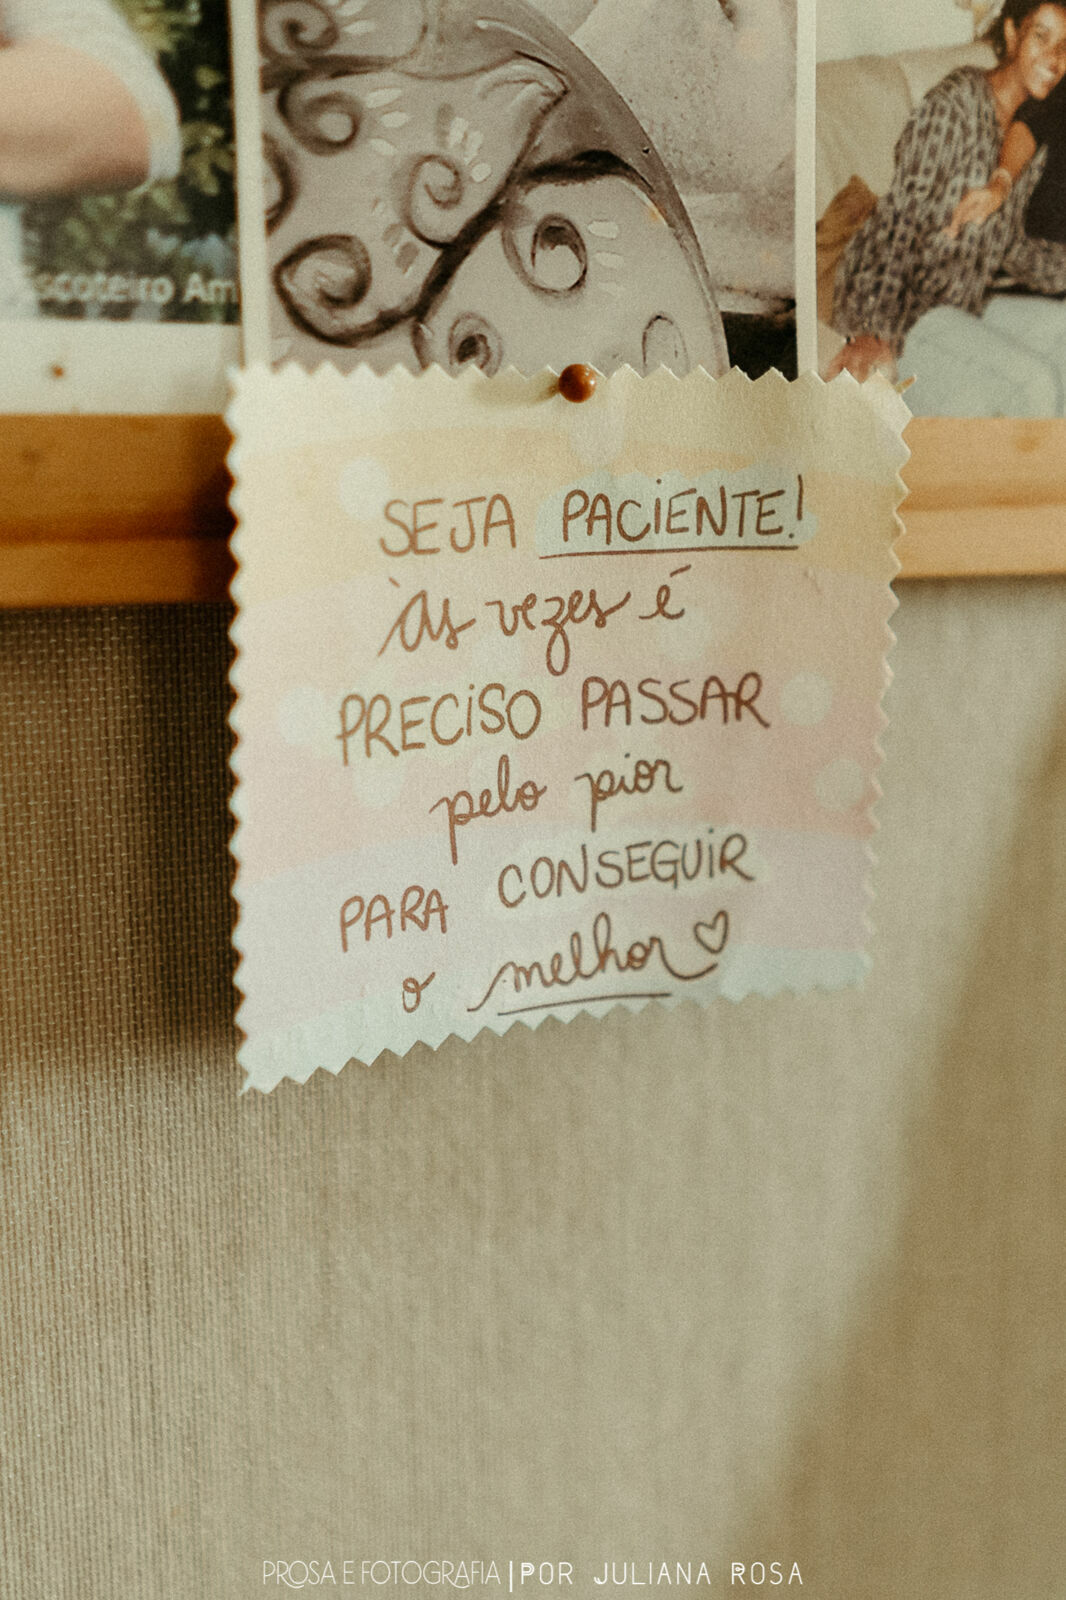 scoteiro Am
SEJA PACIENTE!
Às vezes é
PRECISO PASSAR
pelo pior
PARA CONSEGUIR
o melhor ♡
PROSA E FOTOGRAFIA | POR JULIANA ROSA